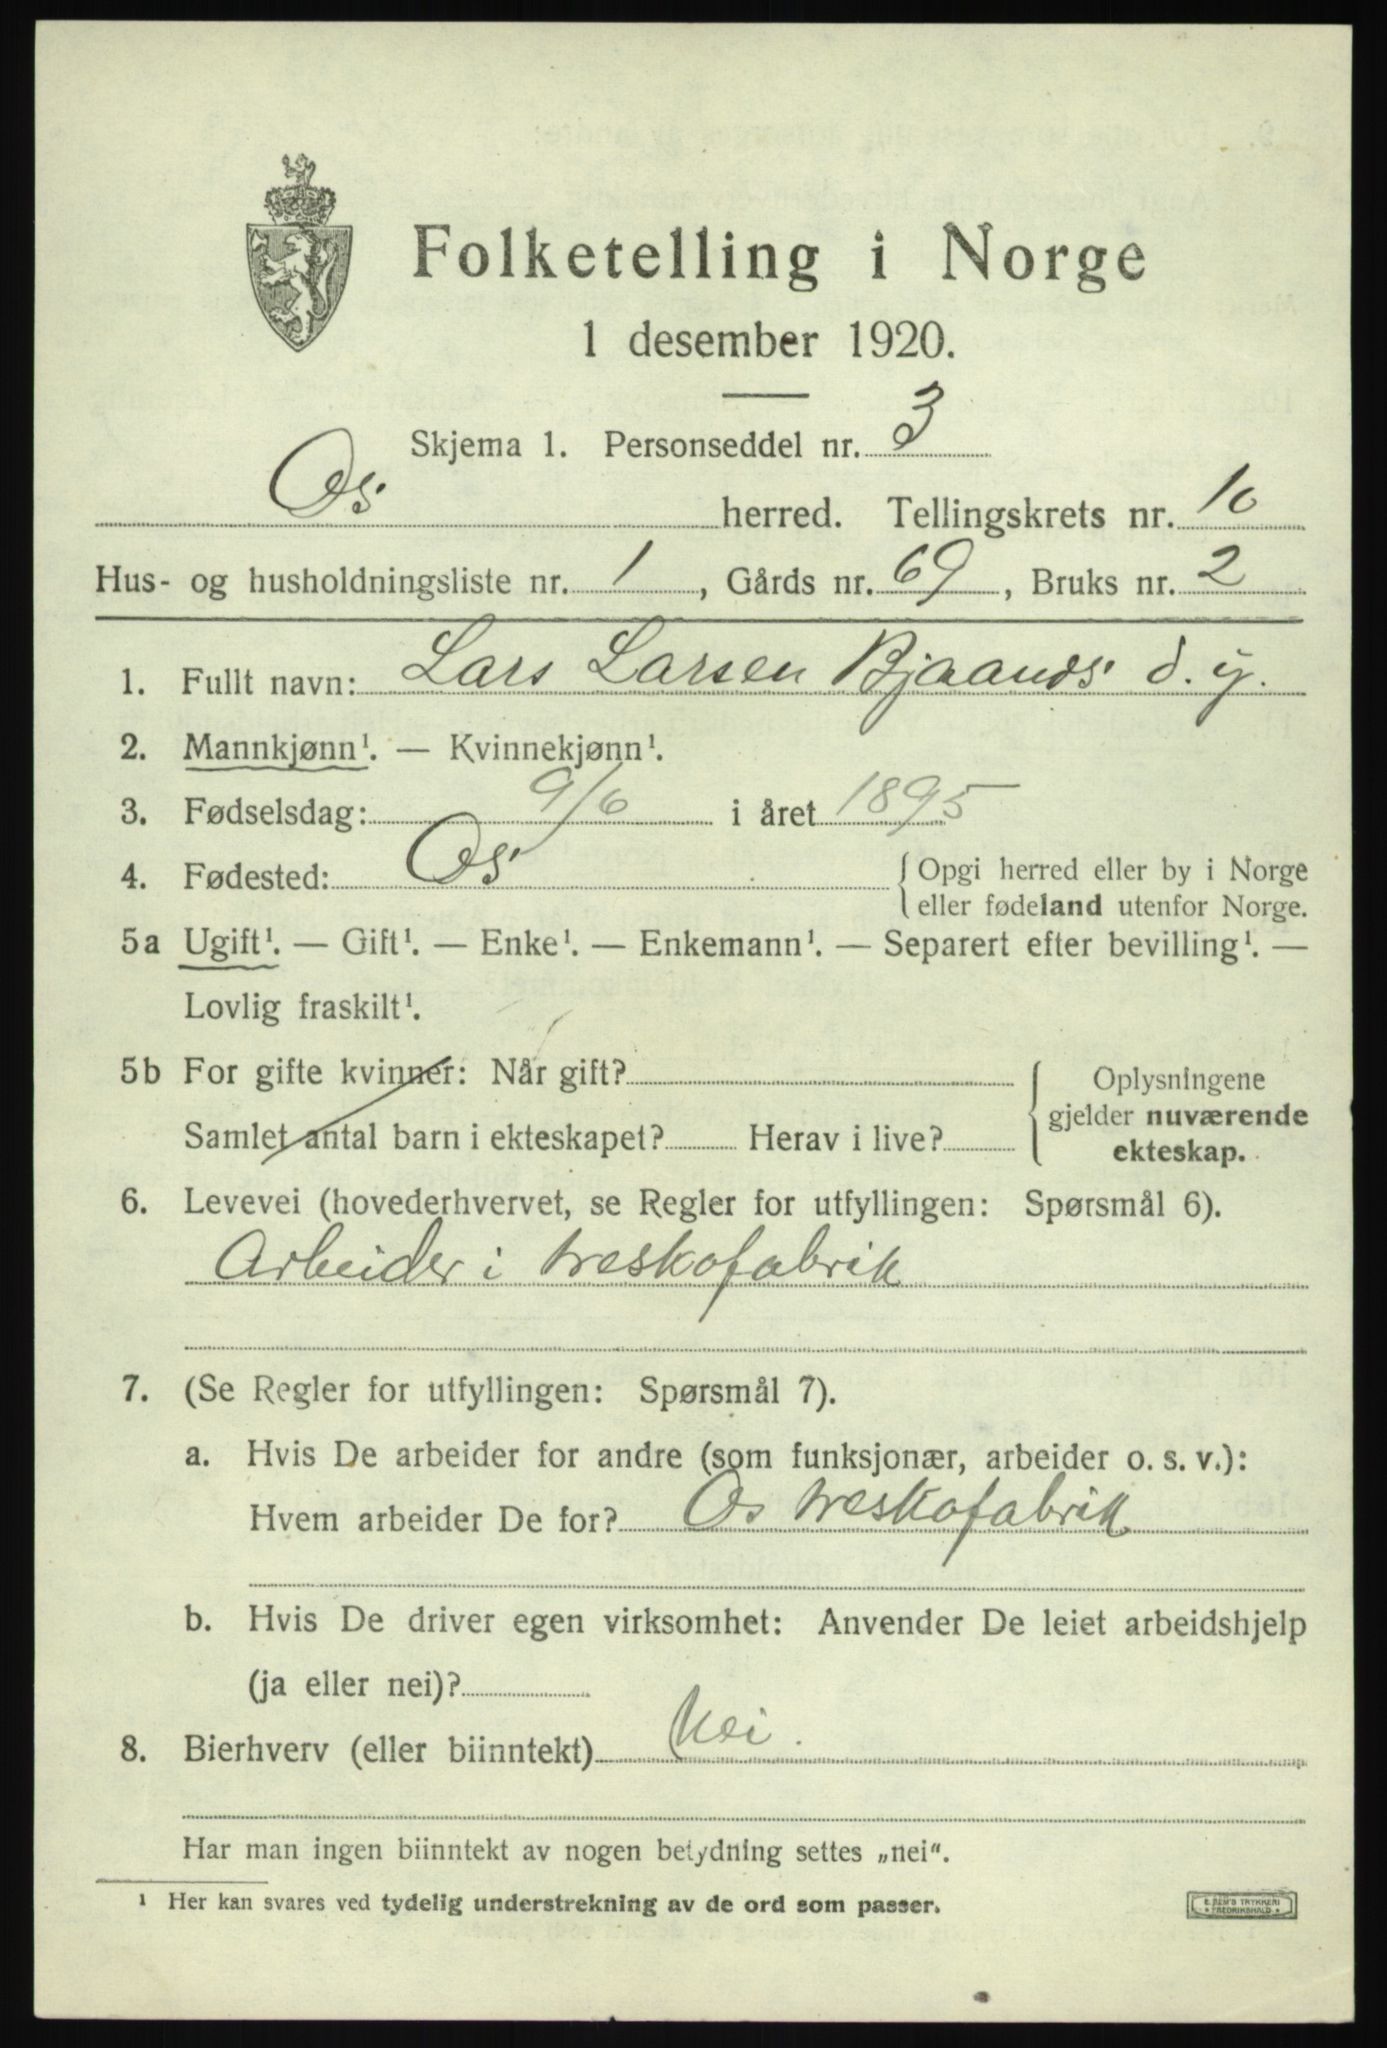 Folketelling i Norge
1 desember 1920.
Skjema 1. Personseddel nr. 3
Os herred. Tellingskrets nr. 10
Hus- og husholdningsliste nr. 1, Gårds nr. 69, Bruks nr. 2
1. Fullt navn: Lars Larsen Bjaanes d. y.
2. Mannkjønn¹. — Kvinnekjønn¹.
3. Fødselsdag: 9/6 i året 1895
4. Fødested: Os { Opgi herred eller by i Norge
eller fødeland utenfor Norge.
5a Ugift¹. — Gift¹. — Enke¹. — Enkemann¹. — Separert efter bevilling¹. —
Lovlig fraskilt¹.
5b For gifte kvinner: Når gift?
Samlet antal barn i ekteskapet? Herav i live?
{ Oplysningene
gjelder nuværende
ekteskap.
6. Levevei (hovederhvervet, se Regler for utfyllingen: Spørsmål 6).
Arbeider i treskofabrik
7. (Se Regler for utfyllingen: Spørsmål 7).
a. Hvis De arbeider for andre (som funksjonær, arbeider o. s. v.):
Hvem arbeider De for? Os treskofabrik
b. Hvis De driver egen virksomhet: Anvender De leiet arbeidshjelp
(ja eller nei)?
8. Bierhverv (eller biinntekt) Nei.
Har man ingen biinntekt av nogen betydning settes „nei“.
¹ Her kan svares ved tydelig understrekning av de ord som passer.
E. SEM'S TRYKKERI
FREDRIKSHALD